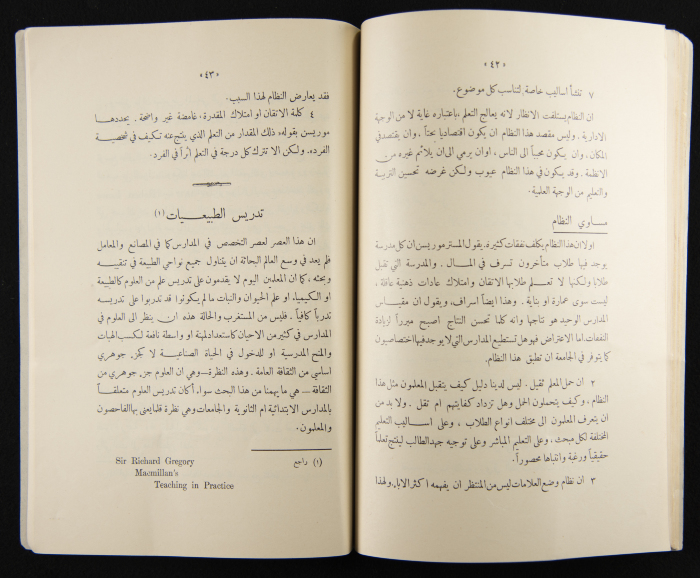 «٤٢»
٧ تنشأ اساليب خاصة لتناسب كل موضوع.
ان النظام يستلفت الانظار لانه يعالج التعلم، باعتباره غاية لا من الوجهة
الادارية. وليس مقصد هذا النظام ان يكون اقتصادياً بحتاً. وان يقتصد في
المكان. وان يكون محبباً الى الناس، او ان يرمي الى ان يلائم غيره من
الانظمة. وقد يكون في هذا النظام عيوب ولكن غرضه تحسين التربية
والتعليم من الوجهة العلمية.
مساوي النظام
اولا ان هذا النظام يكلف نفقات كثيرة. يقول المستر موريسن ان كل مدرسة
يوجد فيها طلاب متأخرون تسرف في المال. والمدرسة التي تقبل
طلابا ولكنها لا تعلم طلابها الاتقان وامتلاك عادات ذهنية عاقلة،
ليست سوى عمارة او بناية. وهذا ايضاً اسراف. ويقول ان مقياس
المدارس الوحيد هو نتاجها وانه كلما تحسن النتاج اصبح مبرراً لزيادة
النفقات. اما الاعتراض فهو هل تستطيع المدارس التي لا يوجد فيها اختصاصيون
كما يتوفر في الجامعة ان تطبق هذا النظام.
٢ ان حمل المعلم ثقيل. ليس لدينا دليل كيف يتقبل المعلمون مثل هذا
النظام، وكيف يتحملون الحمل وهل تزداد كفايتهم ام تقل. ولا بد من
ان يتعرف المعلمون الى مختلف انواع الطلاب، وعلى اساليب التعليم
المختلفة لكل مبحث. وعلى التعليم المباشر وعلى توجيه جهد الطالب لينتج تعلماً
حقيقياً ورغبة وانتباها محصوراً.
٣ ان نظام وضع العلامات ليس من المنتظر ان يفهمه اكثر الاباء، ولهذا
«٤٣»
فقد يعارض النظام لهذا السبب.
٤ كلمة الاتقان او امتلاك المقدرة، غامضة غير واضحة. يحددها
موريسن بقوله «ذلك المقدار من التعلم الذي ينتج عنه تكيف في شخصية
الفرد». ولكن الا تترك كل درجة في التعلم أثراً في الفرد.
تدريس الطبيعيات (١)
ان هذا العصر لعصر التخصص في المدارس كما في المصانع والمعامل
فلم يعد في وسع العالم البحاثة ان يتناول جميع نواحي الطبيعة في تنقيبه
وبحثه، كما ان المعلمين اليوم لا يقدمون على تدريس علم من العلوم كالطبيعة
او الكيمياء او علم الحيوان والنبات ما لم يكونوا قد تدربوا على تدريسه
تدرباً كافياً. فليس من المستغرب والحالة هذه ان ينظر الى العلوم في
المدارس في كثير من الاحيان كاستعداد لمهنة او واسطة نافعة لكسب الهبات
والمنح المدرسية او للدخول في الحياة الصناعية لا كجزء جوهري
اساسي من الثقافة العامة. وهذه النظرة — وهي ان العلوم جزء جوهري من
الثقافة — هي ما يهمنا من هذا البحث سواء أكان تدريس العلوم متعلقاً
بالمدارس الابتدائية ام الثانوية والجامعات وهي نظرة قلما يعنى بها الفاحصون
والمعلمون.
(١) راجع Sir Richard Gregory
Macmillan's
Teaching in Practice